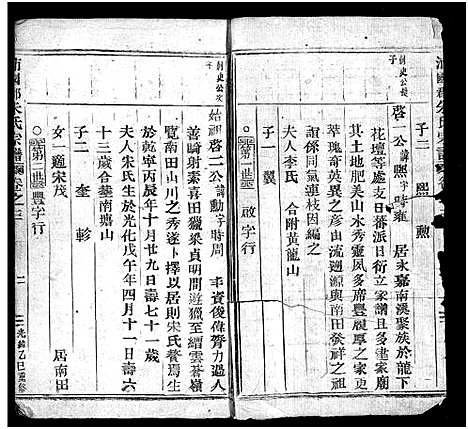 子二 熙 勲
刺史公次子
啓一公諱熙字時雍 居永嘉南溪聚族於龍下
花壇等處支日蕃派日衍立家譜且多建家廟
其土地肥美山水秀靈風多席豐履厚人則出
萃瑰奇英異之彦由流溯源與南田發祥之祖
誼係同氣連枝因附及之
夫人李氏 合附黃龍山
子一 翼
第二世 啟字行
刺史公三子
始祖啓二公諱勳字時周 丰資俊偉膂力過人
善崎射素喜田獵梁貞明間遊獵至縉雲蒼嶺
覽南田山川之秀遂卜擇以居則宋氏餐焉生
於乾寧丙辰年十月廿九日壽七十一歲
夫人宋氏生於光化戊午年四月十一日壽六
十三歲合葬南塘山
子二 奎 軫
女一適宋茂 居南田
第三世 豐字行
沛國郡朱氏宗譜 卷之三
二
光緒乙巳重修